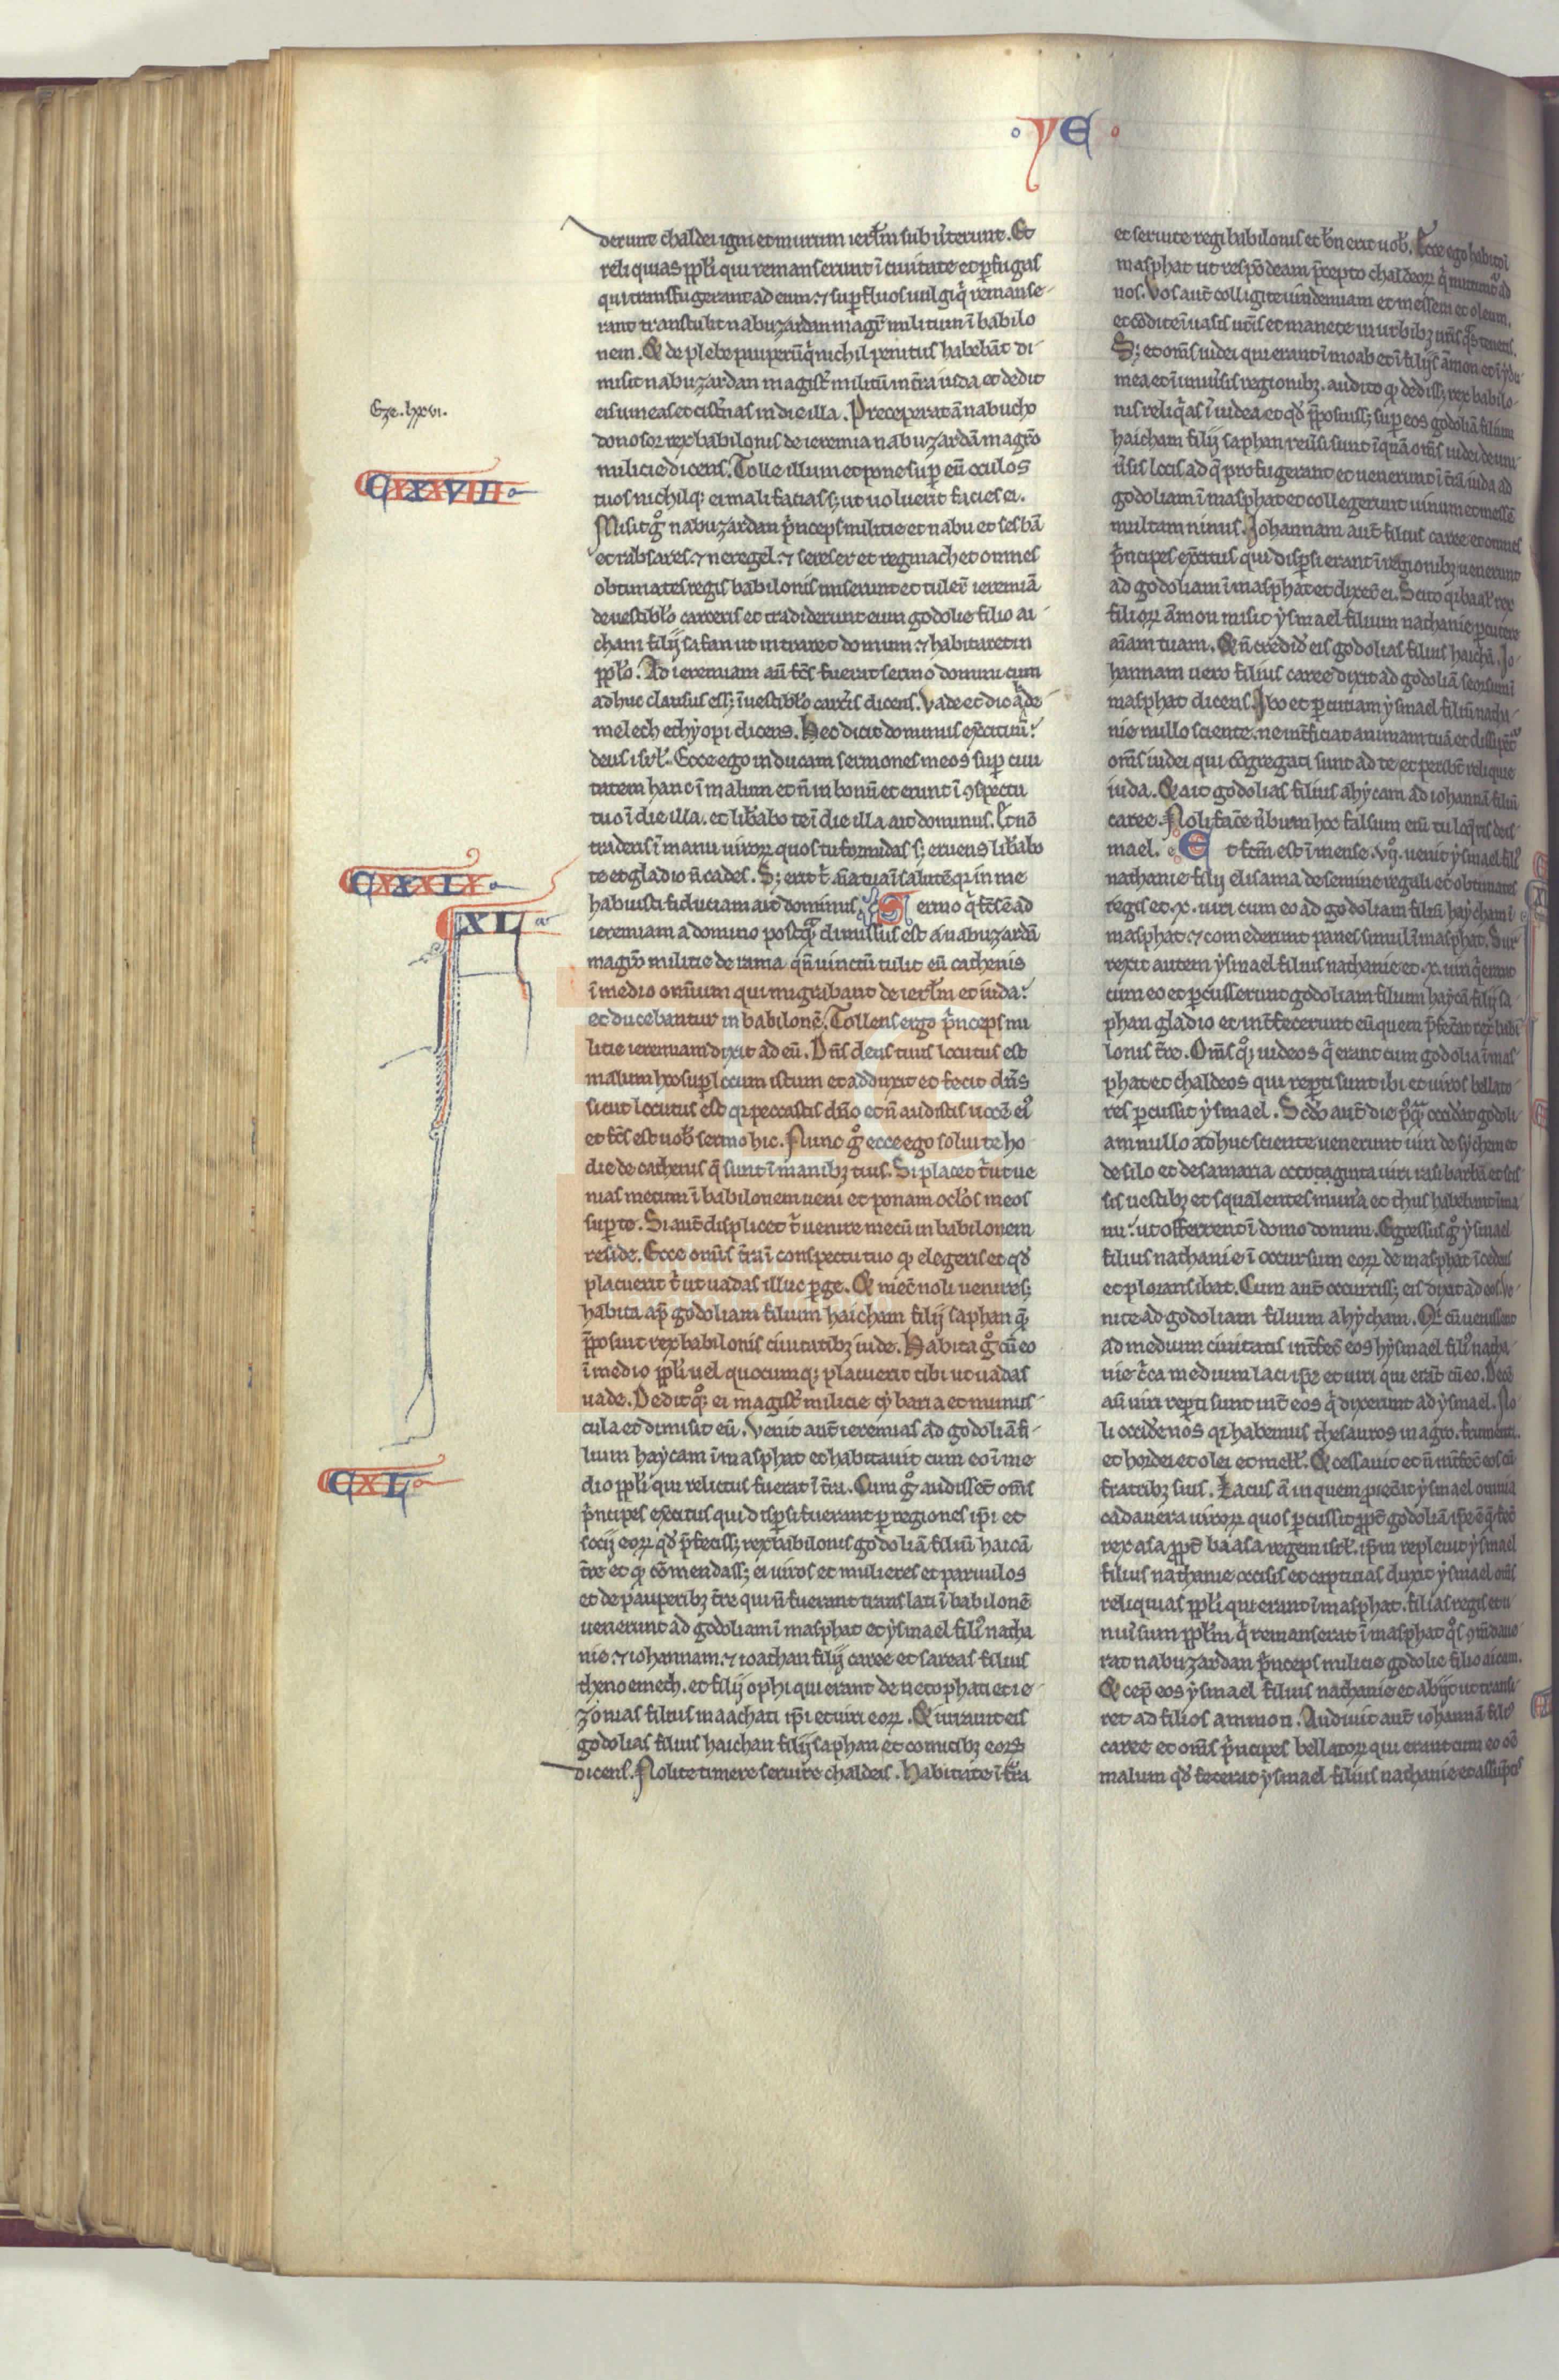 YE
derunt chaldei igni et murum ierłm subũterunt. Et
reliquias ppłi qui remanserunt ĩ ciuitate et ꝑfugas
qui transfugerant ad eum. ⁊ suꝑfluos uulgi q̃ remanse-
rant transtulit nabuzardan magr̃ militum ĩ babilo
nem. Et de plebe pauperũ q̃ nichil penitus habebãt di-
misit nabuzardan magist̃ militũ in tr̃a iuda et dedit
Eze. lxxvi.
eis uineas et cist̃nas in die illa. Preceperat ã nabucho
donosor rex babilonis de ieremia nabuzardã magr̃o
milicie dicens. Tolle illum et pone suꝑ eũ oculos
CXXXVIII
tuos nichilq; ei mali facias s; ut uoluerit facies ei.
Misit g̊ nabuzardan p̃nceps militie et nabu et sesbã
et rabsares. ⁊ neregel. ⁊ sereser et regmach et omnes
obtimates regis babilonis miserunt et tuler̃ ieremiã
de uestibło carceris et tradiderunt eum godolie filio ai-
cham filij safan ut intraret domum. ⁊ habitaret in
ppło. Ad ieremiam aũ fc̃s fuerat sermo domini cum
adhuc clausus ess; ĩ uestibło carc̃is dicens. Vade et dic ade
melech ethyopi dicens. Hec dicit dominus exercituũ.
deus isrł. Ecce ego inducam sermones meos suꝑ ciui
tatem hanc ĩ malum et ñ in bonũ et erunt ĩ ꝯspectu
tuo ĩ die illa. et lib̃abo te ĩ die illa ait dominus. Et nõ
traderis ĩ manu uiroꝝ quos tu formidas s; eruens lib̃abo
CXXXIX
te et gladio ñ cades. S; erit t̃ aĩa tua ĩ salutẽ qr in me
habuisti fiduciam ait dominus. Sermo q̃ fc̃s ẽ ad
XL
ieremiam a domino postq̃ dimissus est a nabuzardã
magr̃o militie de rama qñ uinctũ tulit eũ cathenis
ĩ medio omĩum qui migrabant de ierłm et iuda.
et ducebantur in babilonẽ. Tollens ergo p̃nceps mi
litie ieremiam dixit ad eũ. Dñs deus tuus locutus est
malum hoc suꝑ locum istum et adduxit et fecit dñs
sicut locutus est qr peccastis dño et ñ audistis uocẽ ei⁹
et fc̃s est uob̃ sermo hic. Nunc g̊ ecce ego solui te ho
die de cathenis q̃ sunt ĩ manibꝫ tuis. Si placet t̃ ut ue
nias mecum ĩ babilonem ueni et ponam oclos meos
suꝑ te. Si aut̃ displicet t̃ uenire mecũ in babilonem
reside. Ecce om̃is tr̃a ĩ conspectu tuo ꝙ elegeris et qđ
placuerit t̃ ut uadas illuc ꝑge. Et mec̃ noli uenire s;
habita ap̃ godoliam filium haicham filij saphan q̃
p̃posuit rex babilonis ciuitatibꝫ iude. Habita g̊ cũ eo
ĩ medio ppłi uel quocumq; placuerit tibi ut uadas
uade. Dedit q̊; ei magist̃ milicie cybaria et munus-
cula et dimisit eũ. Venit aut̃ ieremias ad godoliã fi-
lium haycam ĩ masphat et habitauit cum eo ĩ me
CXL
dio ppłi qui relictus fuerat ĩ tr̃a. Cum g̊ audissent om̃s
p̃ncipes exc̃itus qui disꝑsi fuerant ꝑ regiones ip̃i et
socij eoꝝ qđ p̃feciss; rex babilonis godoliã filiũ haicã
tr̃e et ꝙ cõmendass; ei uiros et mulieres et paruulos
et de pauperibꝫ tr̃e qui ñ fuerant translati ĩ babilonẽ
uenerunt ad godoliam ĩ masphat et ysmael fili⁹ natha
nie. ⁊ iohannam. ⁊ ioachan filij caree et sareas filius
thenoemech. et filij ophi qui erant de netophati et ie-
zonias filius maachati ip̃i et uiri eoꝝ. Et iurauit eis
godolias filius haichan filij saphan et comitibꝫ eoꝝ
dicens. Nolite timere seruire chaldeis. Habitate ĩ tr̃a
et seruite regi babilonis et bñ erit uob̃. Ecce ego habito ĩ
masphat ut respõdeam p̃cepto chaldeoꝝ q̃ mittunt̃ ad
nos. Vos aut̃ colligite uindemiam et messem et oleum.
et cõdite ĩ uasis ur̃is et manete in urbibꝫ ur̃is q̃s tenetis.
S; et om̃s iudei qui erant ĩ moab et ĩ filijs amon et ĩ ydu-
mea et ĩ uniũsis regionibꝫ. audito ꝙ dediss; rex babilo-
nis reliq̃as ĩ iudea et qđ p̃posuiss; suꝑ eos godoliã filium
haicham filij saphan reũsi sunt ĩquã om̃s iudei de uni-
ũsis locis ad q̃ profugerant et uenerunt ĩ tr̃a iuda ad
godoliam ĩ masphat et collegerunt uinum et messẽ
multam nimis. Iohannam aut̃ filius caree et omnes
p̃ncipes exc̃itus qui disꝑsi erant ĩ regionibꝫ uenerunt
ad godoliam ĩ masphat et dixer̃ ei. Scito qr baal rex
filioꝝ amon misit ysmael filium nathanie ꝑcutere
aĩam tuam. Et ñ credidit eis godolias filius haichã. Io-
hannam uero filius caree dixit ad godoliã seorsum ĩ
masphat dicens. Ibo et ꝑcutiam ysmael filiũ natha-
nie nullo sciente. ne int̃ficiat animam tuã et dissipent̃
om̃s iudei qui cõgregati sunt ad te et peribũt reliquie
iuda. Et ait godolias filius ahycam ad iohannã filiũ
caree. Noli fac̃e ũbum hoc falsum eñ tu loq̃ris de is-
mael. Et fc̃m est ĩ mense. vij. uenit ysmael fili⁹
nathanie filij elisama de semine regali et obtimates
regis et. x. uiri cum eo ad godoliam filiũ haycham ĩ
masphat. ⁊ comederunt panes simul ĩ masphat. Sur-
rexit autem ysmael filius nathanie et. x. uiri q̃ erant
cum eo et ꝑcusserunt godoliam filium haycã filij sa-
phan gladio et int̃fecerunt eũ quem p̃fec̃at rex babi
lonis tr̃e. Om̃s q̊; iudeos q̃ erant cum godolia ĩ mas-
phat et chaldeos qui reꝑti sunt ibi et uiros bellato-
res ꝑcussit ysmael. Scđo aut̃ die p⁹q̃ occid̃at godoli-
am nullo adhuc sciente uenerunt uiri de sychem et
de silo et de samaria octoginta uiri rasi barba et scis
sis uestibꝫ et squalentes munã et thus habebant ĩ ma
nu. ut offerrent ĩ domo domini. Egressus g̊ ysmael
filius nathanie ĩ occursum eoꝝ de masphat ĩcedens
et plorans ibat. Cum aut̃ occurriss; eis dixit ad eos Ve-
nite ad godoliam filium ahycham. Qi cũ uenissent
ad medium ciuitatis int̃fec̃ eos hysmael fili⁹ natha-
nie c̃ca medium laci ip̃e et uiri qui erãt cũ eo. Decẽ
aũ uiri reꝑti sunt int̃ eos q̃ dixerunt ad ysmael. No-
li occid̃e nos qr habemus thesauros in agro. frumenti.
et hordei et olei et mell̃. Et cessauit et ñ int̃fec̃ eos cũ
fratribꝫ suis. Lacus ã in quem proiec̃at ysmael omnia
cadauera uiroꝝ quos ꝑcussit ꝓpt̃ godoliã ip̃e ẽ q̃ fec̃
rex asa ꝓpt̃ baasa regem isrł. ip̃m repleuit ysmael
filius nathanie occisis et captiuas duxit ysmael om̃s
reliquias ppłi qui erant ĩ masphat. filias regis et u-
niũsum ppłm q̃ remanserat ĩ masphat q̊s ꝯm̃daue-
rat nabuzardan p̃nceps milicie godolie filio aicam.
Et cep̃ eos ysmael filius nathanie et abijt ut transi-
ret ad filios ammon. Audiuit aut̃ iohannã fili⁹
caree et om̃s p̃ncipes bellatoꝝ qui erant cum eo oẽ
malum qđ fecerat ysmael filius nathanie et assũptis